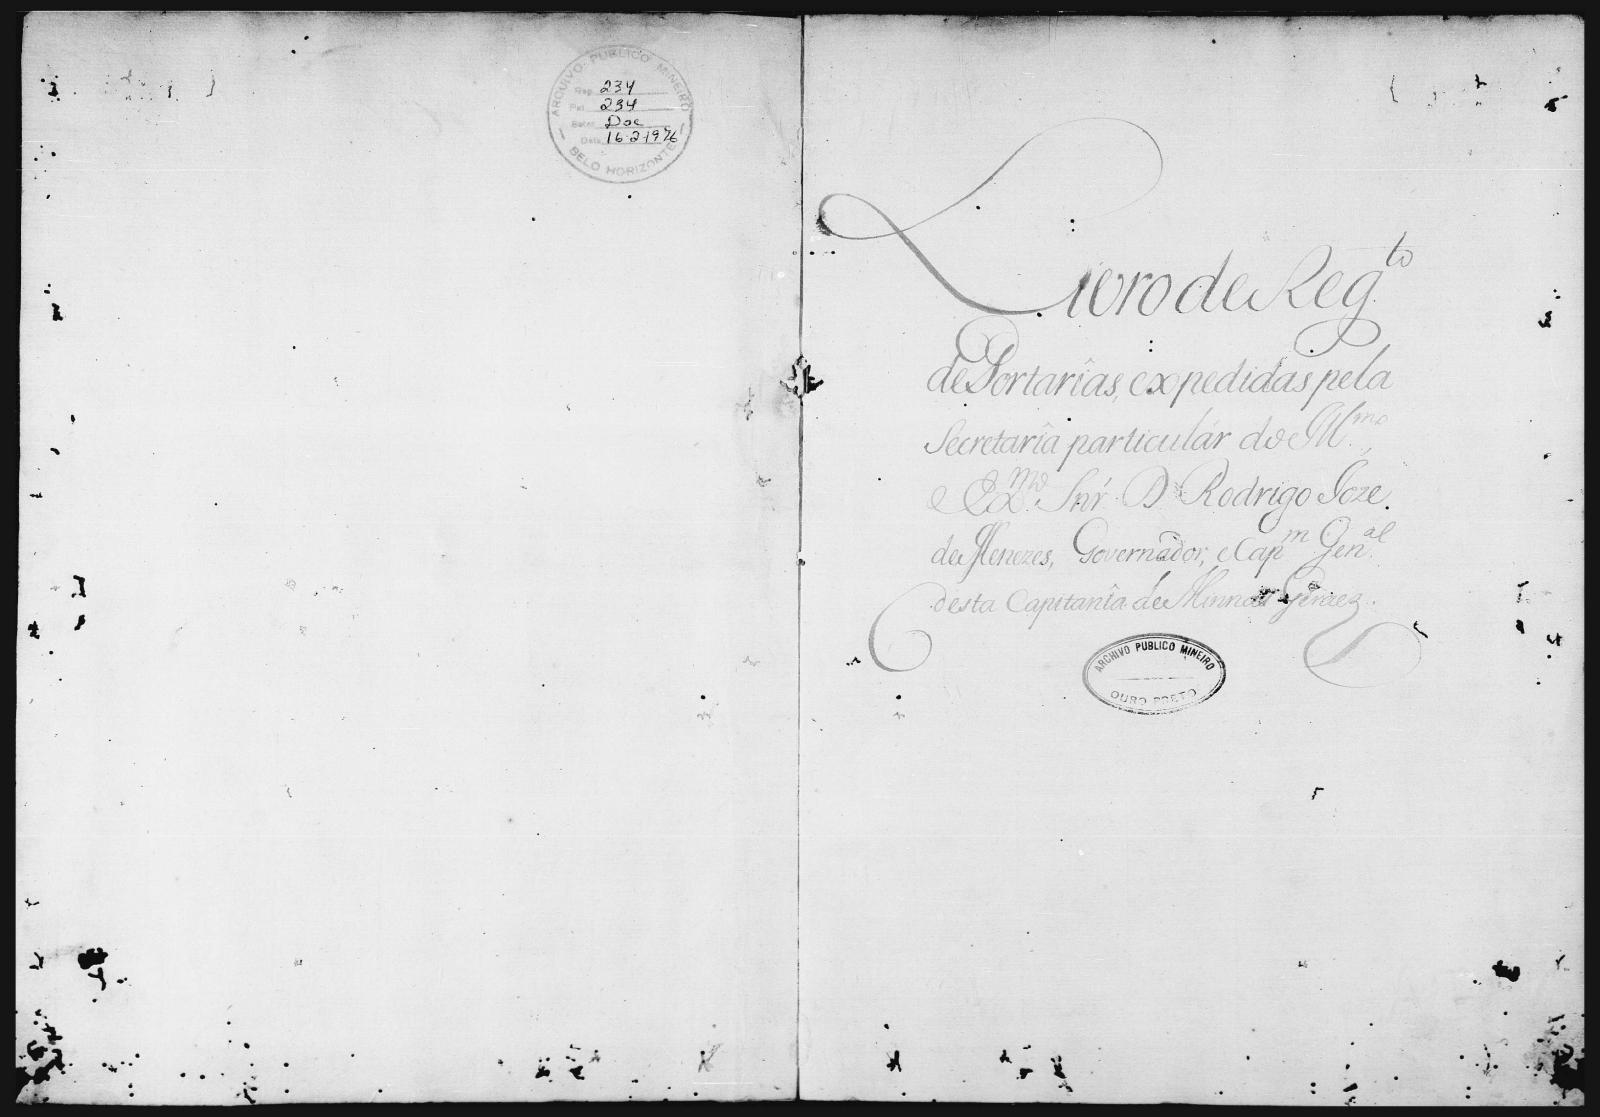 ARCHIVO PUBLICO MINEIRO
Reg. 234
234
Doc
Data 16-2-1976
BELO HORIZONTE
Livro de Reg.to
de Portarîas, expedidas pela
Secretarîa particulár do Ill.mo
e Ex.mo Snr. D. Rodrigo Joze
de Menezes, Governador, e Cap.m Gen.al
desta Capitanîa de Minnas Geraez.
ARCHIVO PUBLICO MINEIRO
OURO PRETO